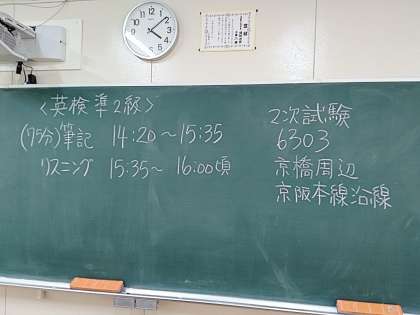 <英検準2級>
(75分)筆記 14:20~15:35
リスニング 15:35~ 16:00頃
2次試験
6303
京橋周辺
京阪本線沿線